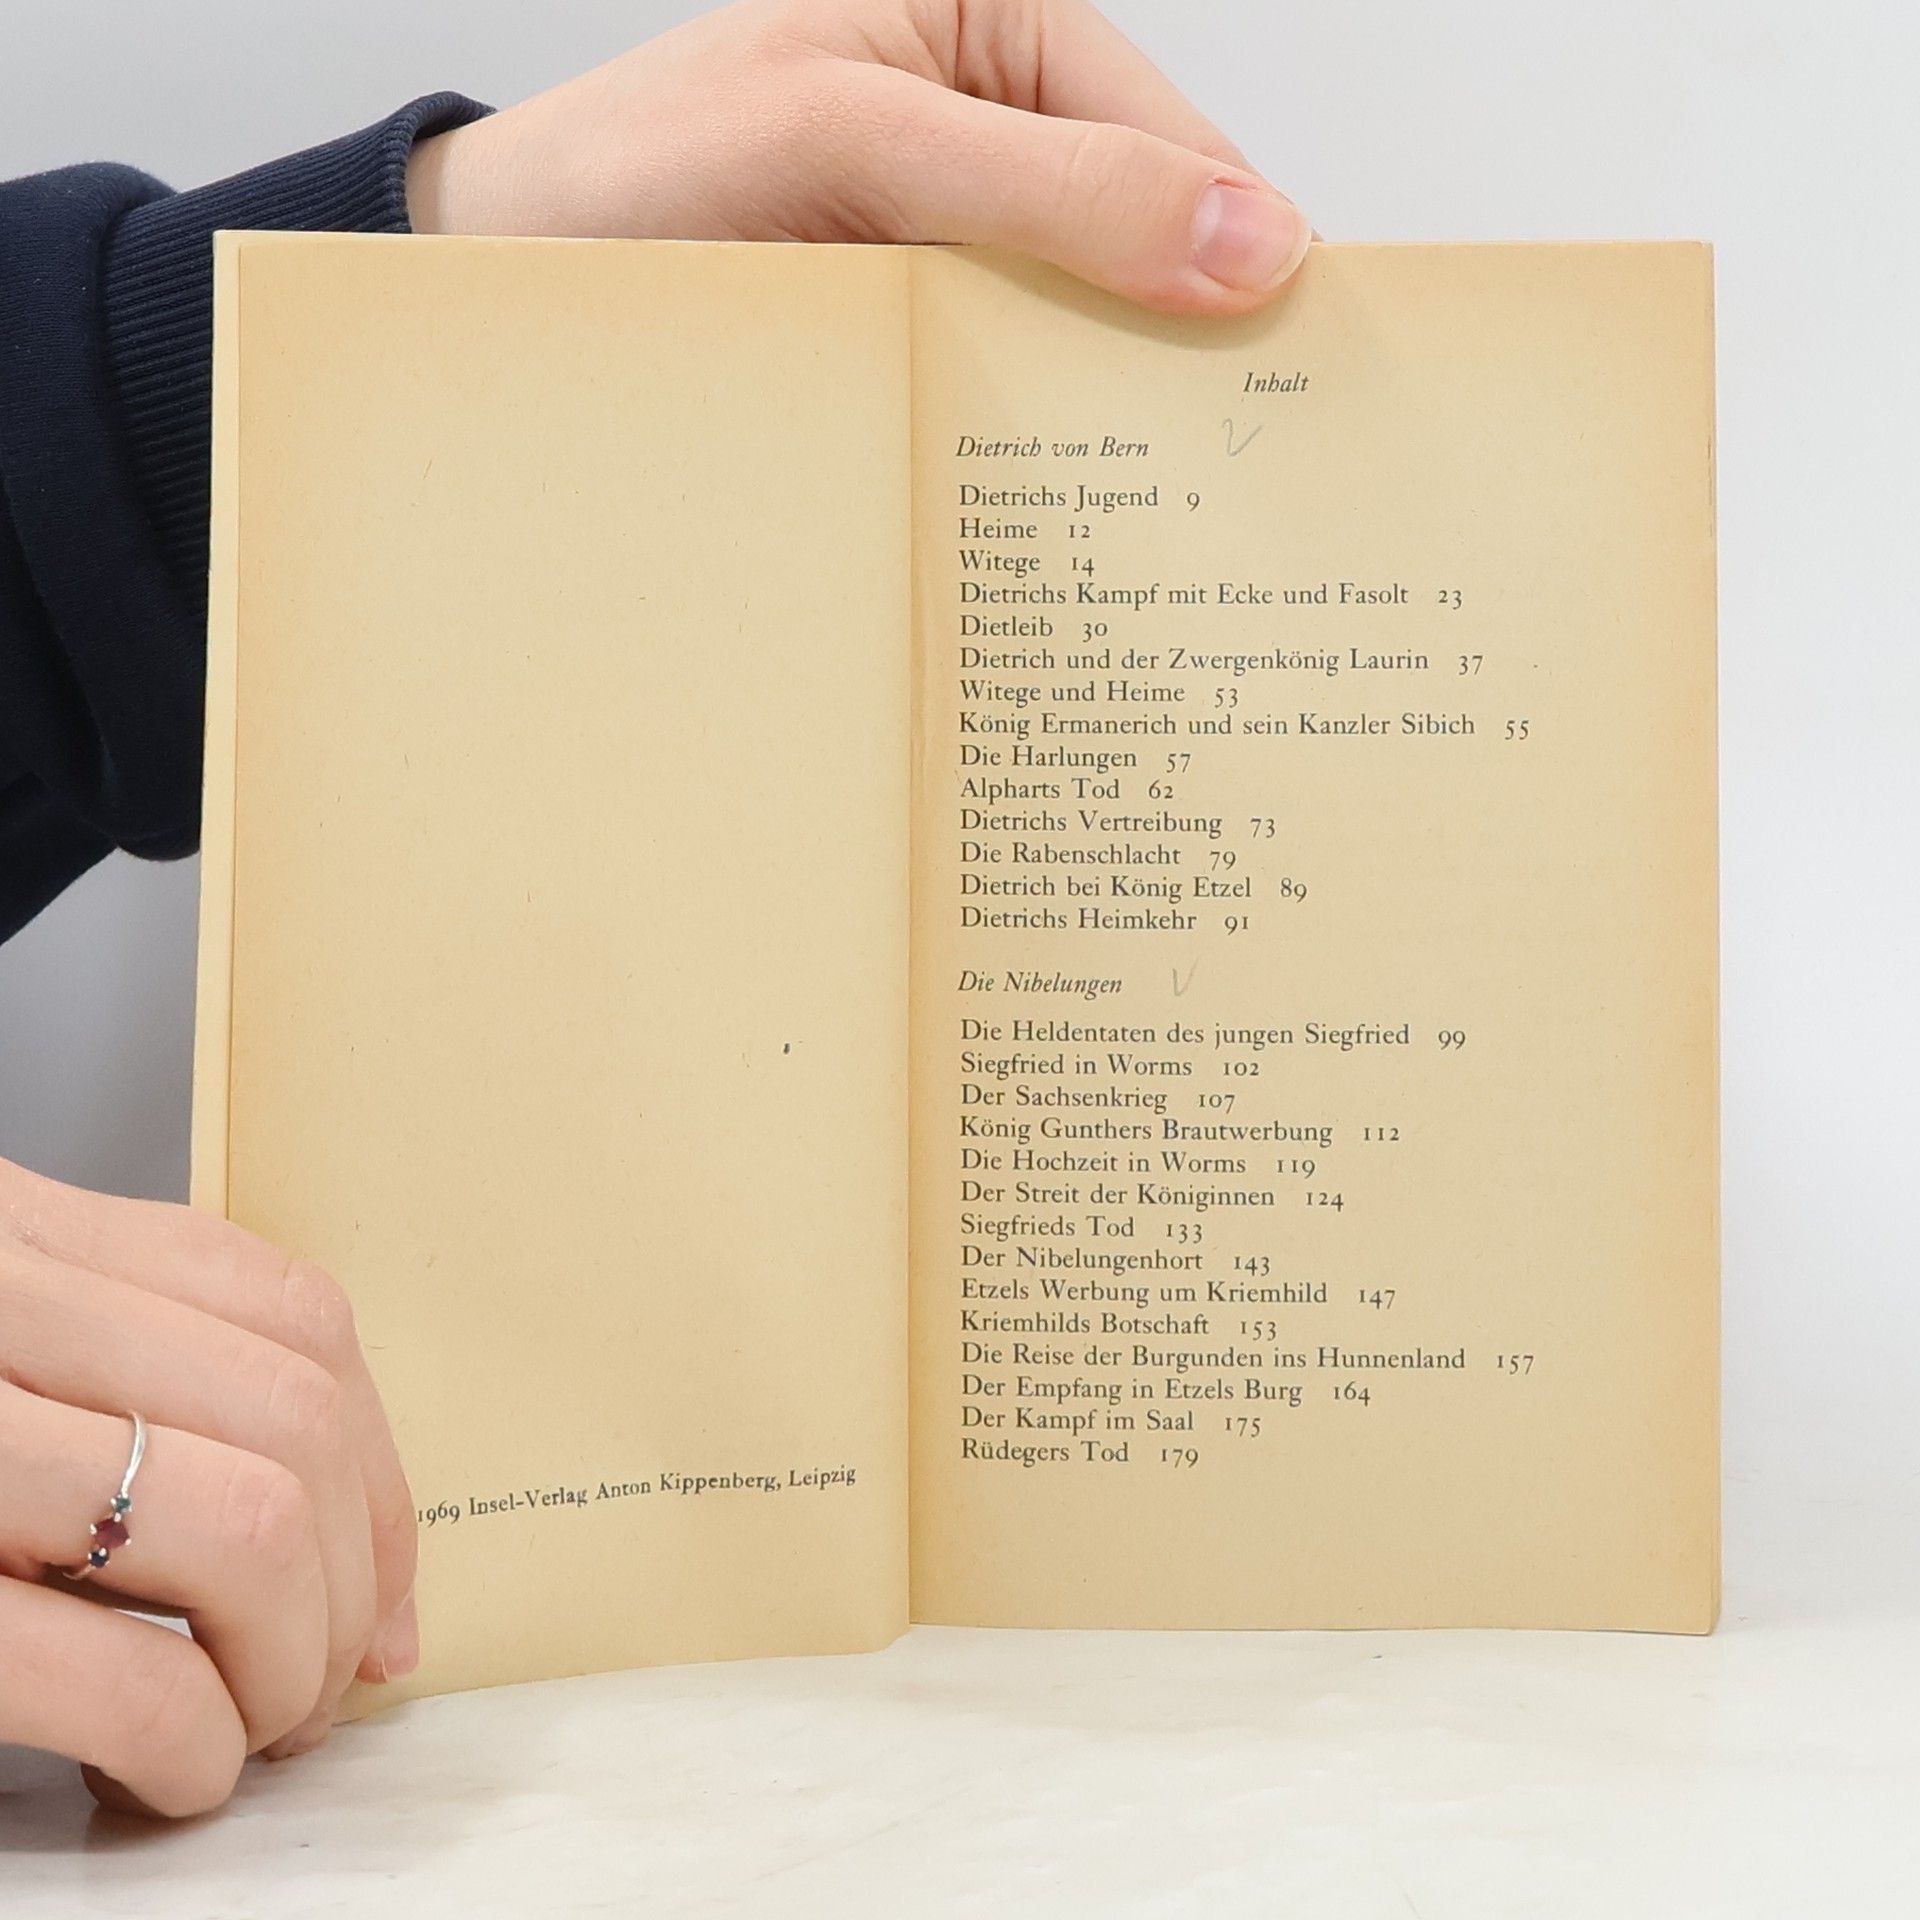 1969 Insel-Verlag Anton Kippenberg, Leipzig
Inhalt
Dietrich von Bern
Dietrichs Jugend 9
Heime 12
Witege 14
Dietrichs Kampf mit Ecke und Fasolt 23
Dietleib 30
Dietrich und der Zwergenkönig Laurin 37
Witege und Heime 53
König Ermanerich und sein Kanzler Sibich 55
Die Harlungen 57
Alpharts Tod 62
Dietrichs Vertreibung 73
Die Rabenschlacht 79
Dietrich bei König Etzel 89
Dietrichs Heimkehr 91
Die Nibelungen
Die Heldentaten des jungen Siegfried 99
Siegfried in Worms 102
Der Sachsenkrieg 107
König Gunthers Brautwerbung 112
Die Hochzeit in Worms 119
Der Streit der Königinnen 124
Siegfrieds Tod 133
Der Nibelungenhort 143
Etzels Werbung um Kriemhild 147
Kriemhilds Botschaft 153
Die Reise der Burgunden ins Hunnenland 157
Der Empfang in Etzels Burg 164
Der Kampf im Saal 175
Rüdegers Tod 179